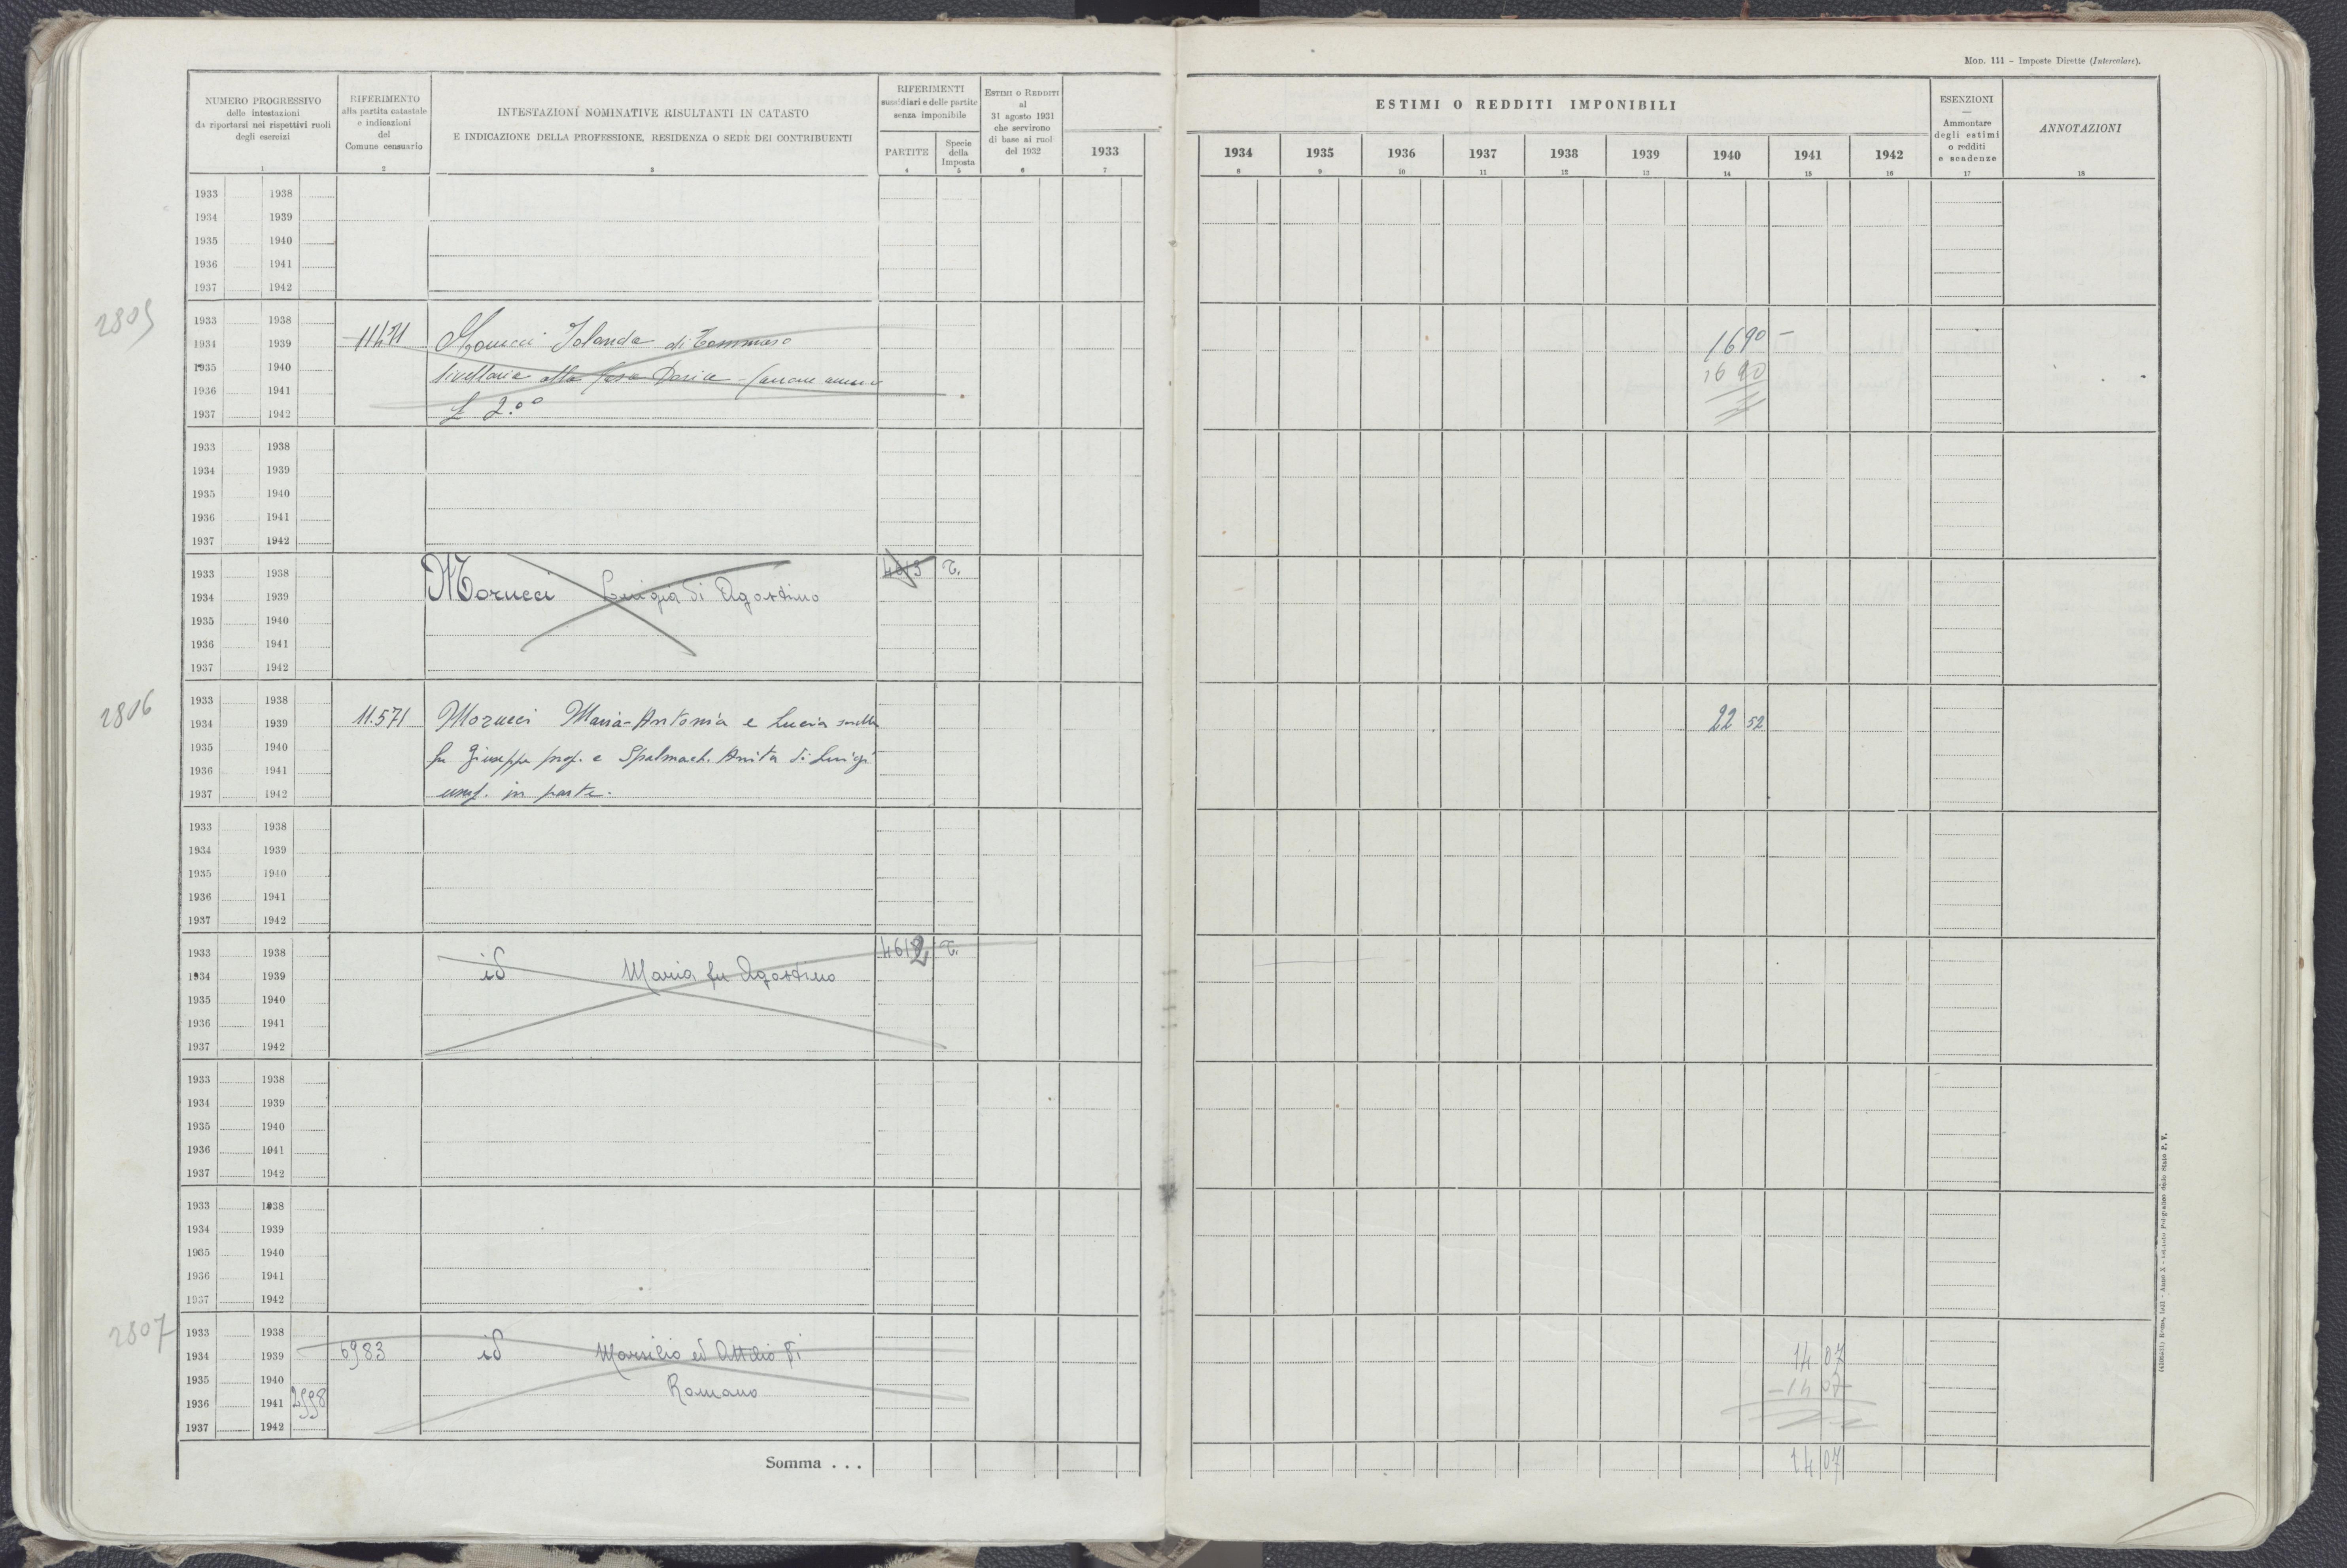 Mod. 111 - Imposte Dirette (Intercalare).
NUMERO PROGRESSIVO
delle intestazioni
da riportarsi nei rispettivi ruoli
degli esercizi
1
RIFERIMENTO
alla partita catastale
e indicazioni
del
Comune censuario
2
INTESTAZIONI NOMINATIVE RISULTANTI IN CATASTO
E INDICAZIONE DELLA PROFESSIONE, RESIDENZA O SEDE DEI CONTRIBUENTI
3
RIFERIMENTI
sussidiari e delle partite
senza imponibile
PARTITE
4
Specie
della
Imposta
5
ESTIMI O REDDITI
al
31 agosto 1931
che servirono
di base ai ruol
del 1932
6
1933
7
ESTIMI O REDDITI IMPONIBILI
1934 1935 1936 1937 1938 1939 1940 1941 1942
8 9 10 11 12 13 14 15 16
ESENZIONI
—
Ammontare
degli estimi
o redditi
e scadenze
17
ANNOTAZIONI
18
1933 1938
1934 1939
1935 1940
1936 1941
1937 1942
2805
1933 1938
1934 1939 11471 Morucci Iolanda di Tommaso 1690 -
1935 1940 livellaria alla 1690
1936 1941
1937 1942 £ 2.00
1933 1938
1934 1939
1935 1940
1936 1941
1937 1942
1933 1938 T.
1934 1939 Morucci Luigia di Agostino
1935 1940
1936 1941
1937 1942
2806
1933 1938
1934 1939 11.571 Morucci Maria-Antonia e Lucia sorelle 22 52
1935 1940
1936 1941 fu Giuseppe prop. e Spalmach. Anita di Luigi
1937 1942 usuf. in parte.
1933 1938
1934 1939
1935 1940
1936 1941
1937 1942
1933 1938 4612 T.
1934 1939 id Maria fu Agostino
1935 1940
1936 1941
1937 1942
1933 1938
1934 1939
1935 1940
1936 1941
1937 1942
1933 1938
1934 1939
1935 1940
1936 1941
1937 1942
2807
1933 1938
1934 1939 6983 id Marsilio ed Attilio di 14 07
1935 1940 Romano - 14 07
1936 1941 2998
1937 1942
Somma . . . 14 07